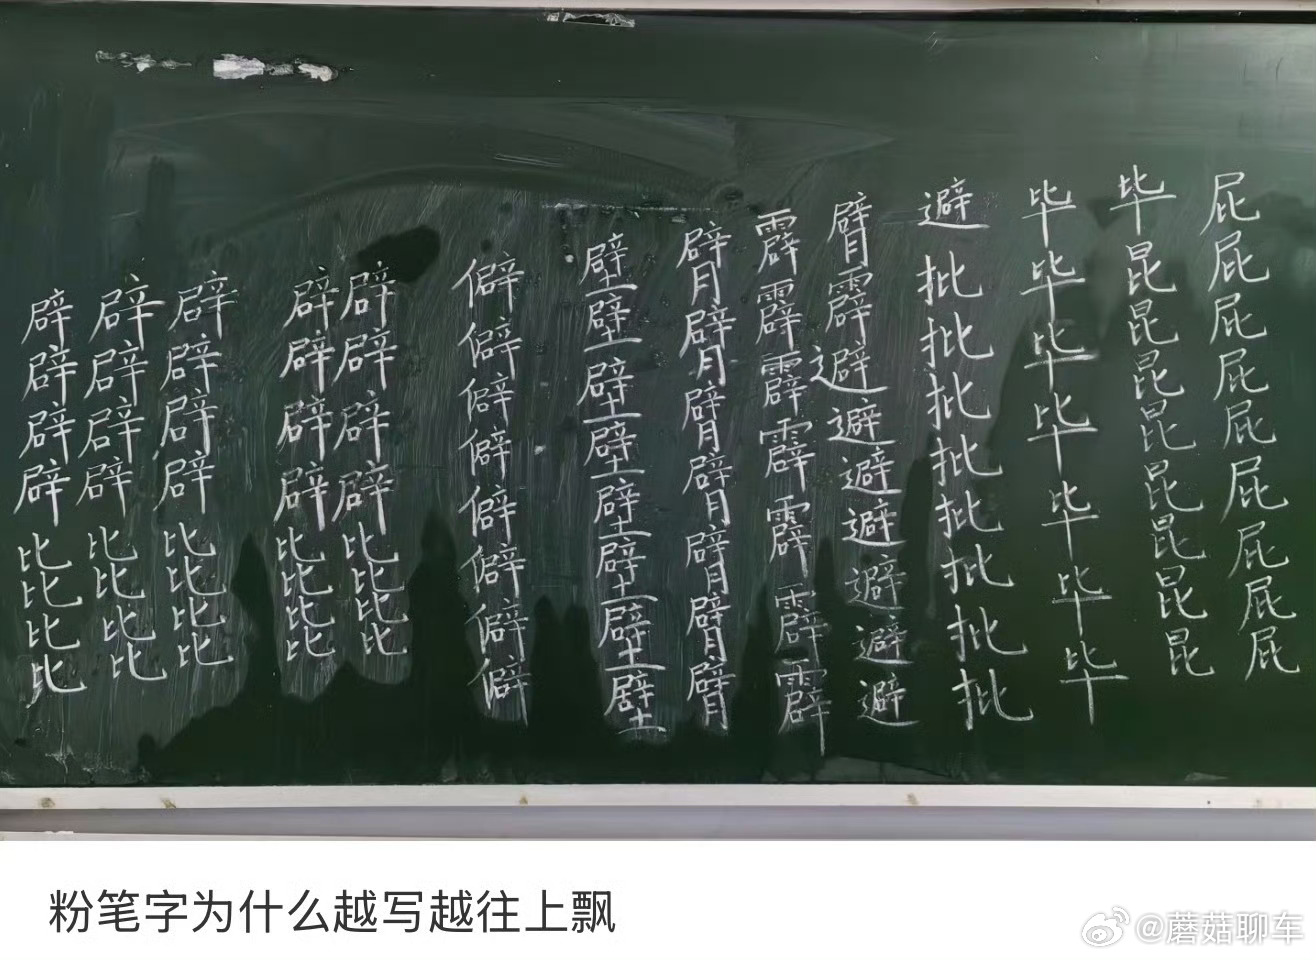 辟辟辟辟比比比比
辟辟辟辟比比比比
辟辟辟辟比比比比
辟辟辟辟比比比比
辟辟辟辟比比比比
僻僻僻僻僻僻僻僻
壁壁壁壁壁壁壁壁
臂臂臂臂臂臂臂
霹霹霹霹霹霹霹
臂霹避避避避避避避
避批批批批批批批批
毕毕毕毕毕毕毕
毕昆昆昆昆昆昆昆昆
屁屁屁屁屁屁屁屁屁
粉笔字为什么越写越往上飘
@蘑菇聊车